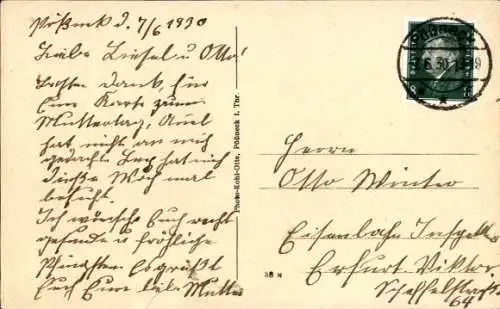 Pößneck d. 7/6 1930
Liebe Liesel u Otto!
Besten Dank, für
Eure Karte zum
Muttertag, Axel
hat nicht an mich
gedacht. hat mich
diese Woch mal
besucht.
Ich wünsche Euch recht
gesunde u fröhliche
Pfingsten. Es grüßt
Euch Eure lieb. Mutter
Photo-Kohl-Otte, Pößneck i. Thr.
38 N
Pößneck
6.30
Herrn
Otto Winter
Eisenbahn Inspekt.
Erfurt. Viktor
Scheffelstraße
64